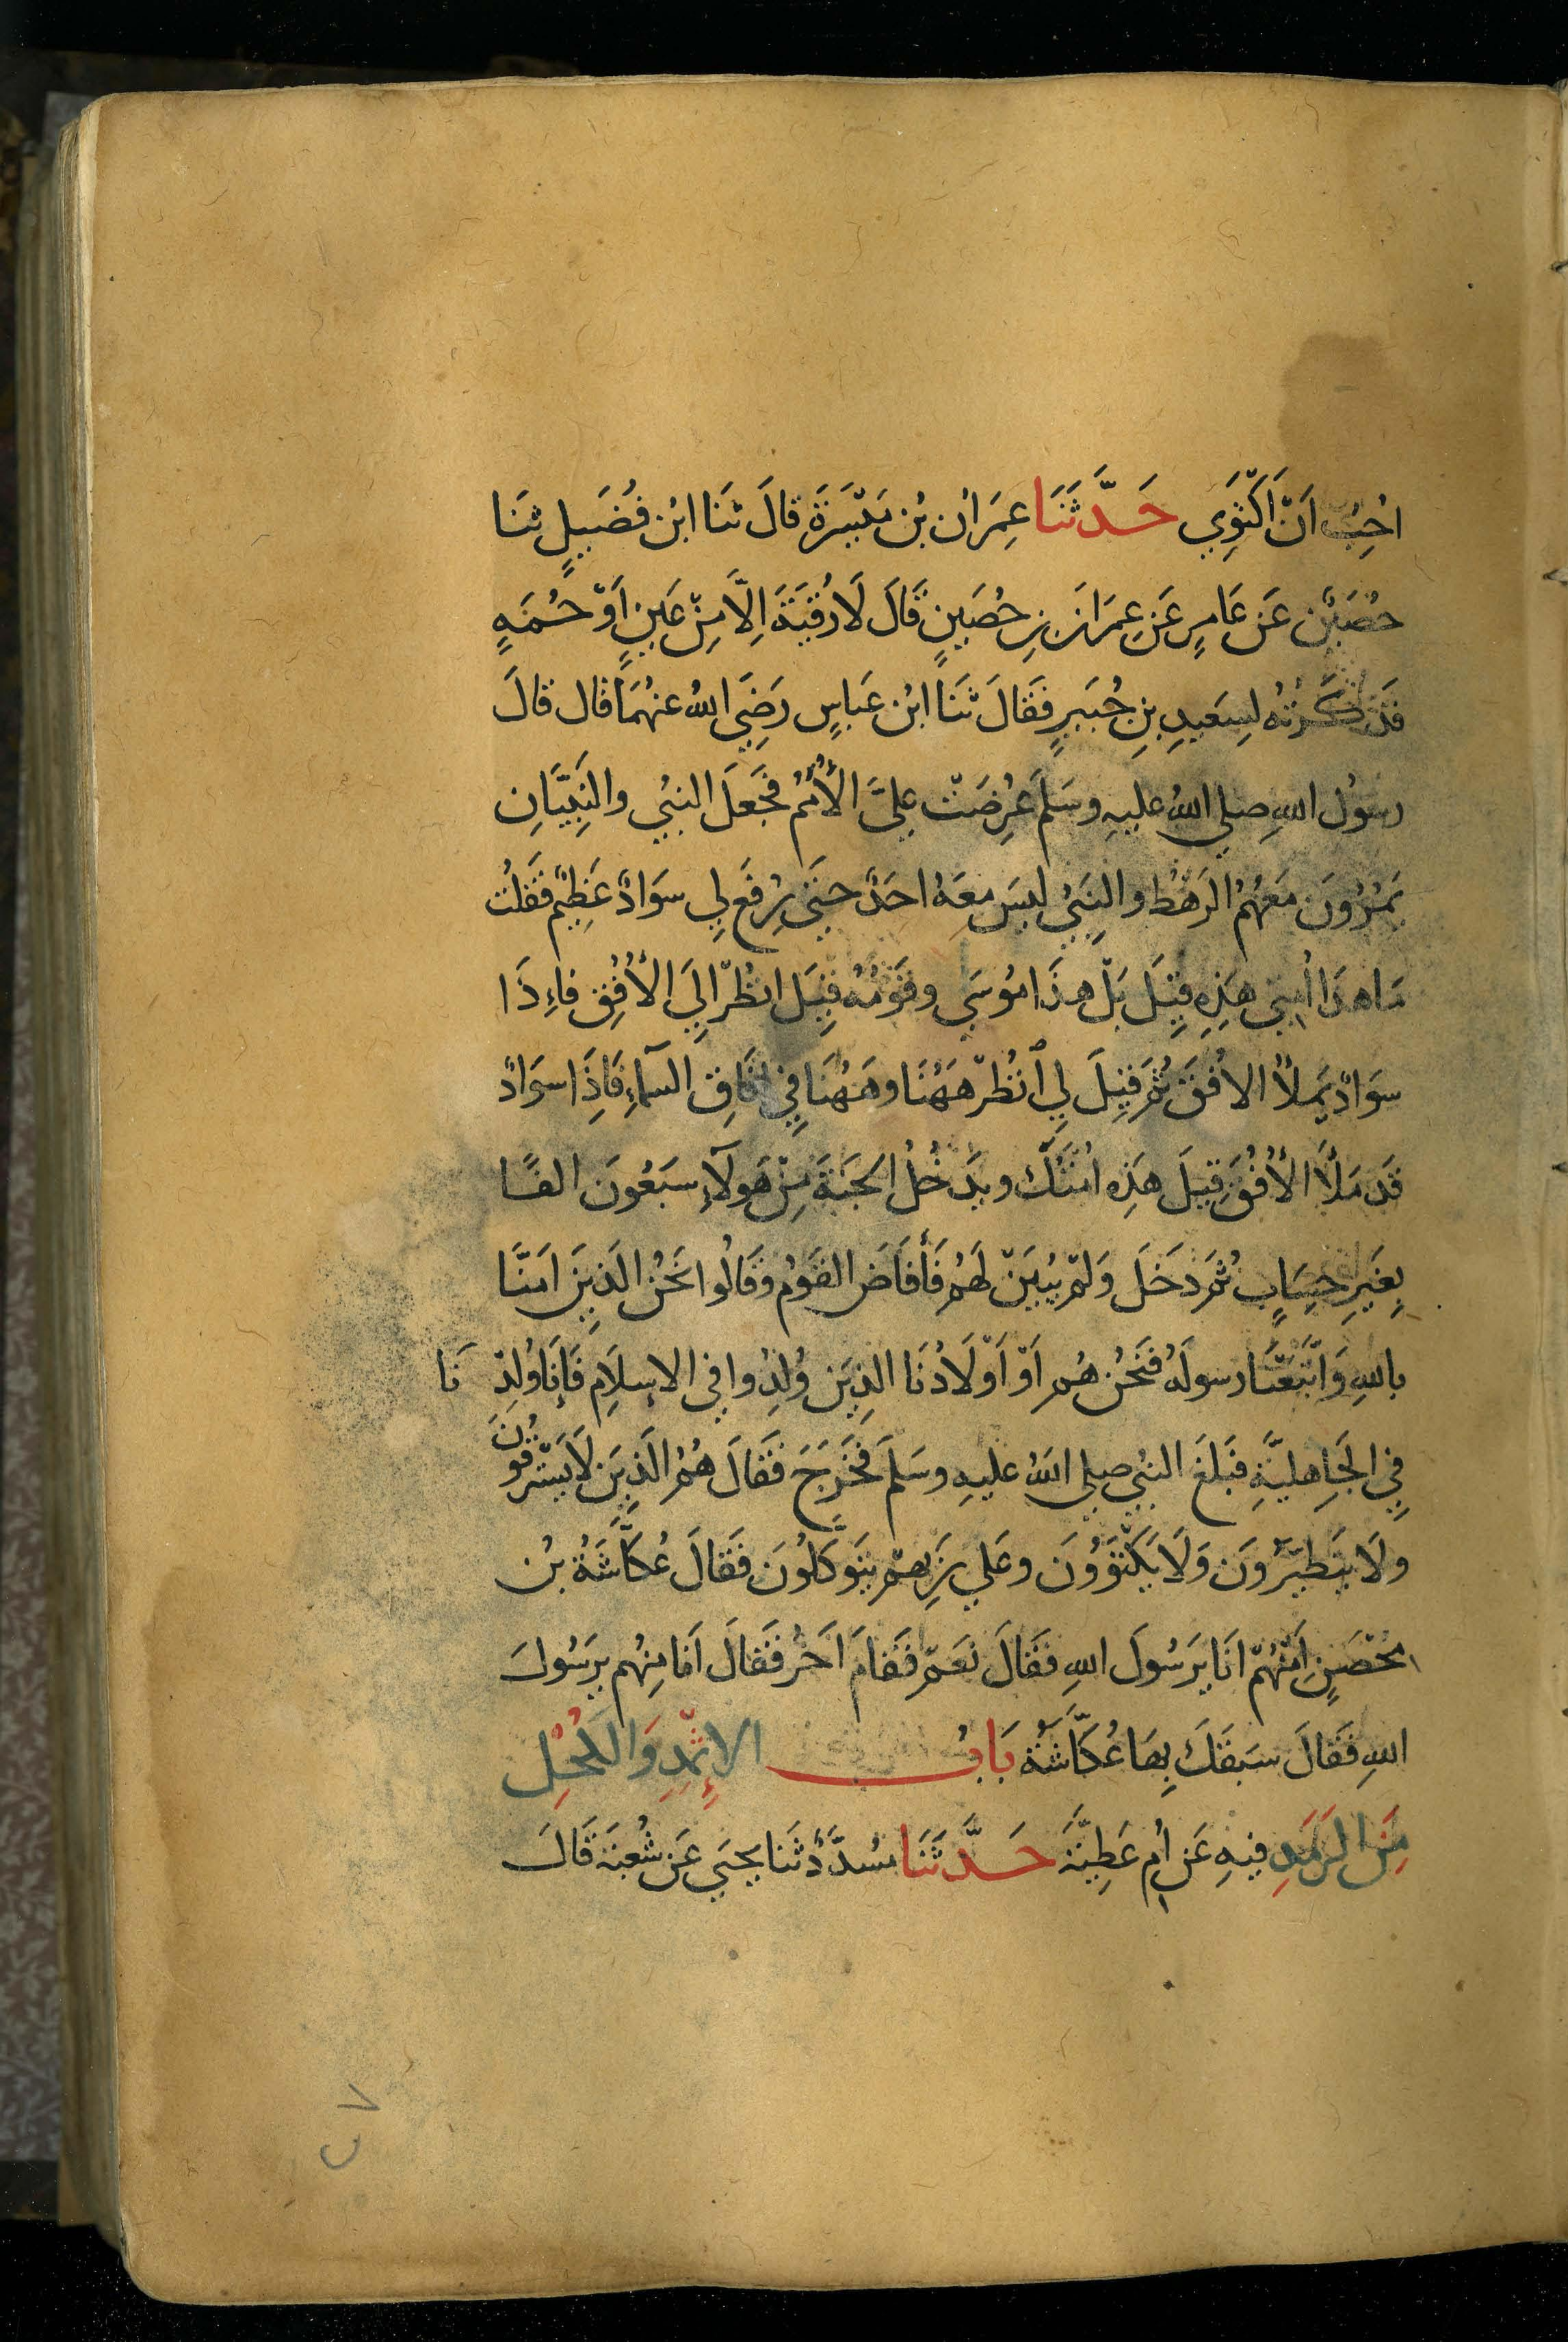 احِبُّ اَنْ اَكْتَوِي حَدَّثَنَا عِمَرَانُ بْنُ مَيْسَرَةَ قالَ ثنَا ابْن فُضَيلٍ ثنَا
حُصَيْن عَن عَامِرٍ عَن عِمرَانَ بنِ حُصَينٍ قَالَ لَا رُقيَةَ اِلَّا مِنْ عَينٍ اَوْ حُمَةٍ
فَذكَرْتُه لِسَعيدِ بنِ جُبَيرٍ فَقَالَ ثنَا ابْن عَباسٍ رَضِيَ اللهُ عنهُمَا قال قالَ
رسوُل اللهِ صلي اللهُ عليهِ وسَلمَ عُرِضَتْ عليَّ الأُمَمُ فجَعلَ النبيُ والنَبِيَّانِ
يَمُرُّونَ مَعَهُمُ الرَهْطُ والنِبَيُ ليسَ معَهُ احَدٌ حتَى رُفعَ لِي سوَادٌ عَظِيْم فقَلُت
مَا هذَا اُمتِي هَذِهِ قِيَلَ بَلْ هذَا مُوسَي وقَومُهُ قِيَل انظُرْ اِلَي الأُفُقِ فاِذَا
سوَادٌ يَملأُ الافُقَ ثمَّ قِيلَ لِي اُنظُرْ هَهُنَا وهَهُنَا فِي افَاقِ السمآءِ فَاِذَا سوَادٌ
قَد مَلأَ الأُفُقَ قِيلَ هَذِه اُمتُكَ ويدَخُلُ الجنَةَ مِنْ هَولآءِ سبَعُونَ الفًا
بِغَيرِ حِسَابٍ ثمَّ دخَلَ وَلمْ يُبَينْ لَهُمْ فَأَفَاضَ القَومُ وقَالُوا نَحنُ الَذِينَ امَنَّا
باللهِ وَاتَّبَعْنَا رسولَهُ فنَحْنُ هُم اَوْ اَوْلَادُنَا الذِينَ وُلِدُوا فِي الاِسلَامِ فَإِنَا وُلِدْنَا
فِي الجَاهليَّةِ فبَلغَ النبيَ صلي اللهُ عليهِ وسَلمَ فخَرَجَ فقَالَ هُمُ الَذِينَ لَا يَسْتَرقُونَ
ولَا يتَطيَّرُونَ وَلَا يَكْتَوُونَ وعَلي رَبِهمْ يتَوَكَّلُونَ فقَالَ عُكَّاشَةُ بْن
محْصَنٍ اَمِنْهُمْ انَا يَرَسُولَ اللهِ فقَالَ نعَمْ فقَامَ اَخَرُ فقَالَ اَمَا مِنهُم يرَسُولَ
اللهِ فقَالَ سَبقَكَ بِهَا عُكَّاشَةُ بَابُ الاِثْمِدِ وَالكُحْلِ
مِنَ الرَمَدِ فيهِ عَن اُم عَطِيَّةَ حَدَّثَنَا مُسدَّدٌ ثنَا يحيَي عَن شُعْبَة قَالَ
٢٧